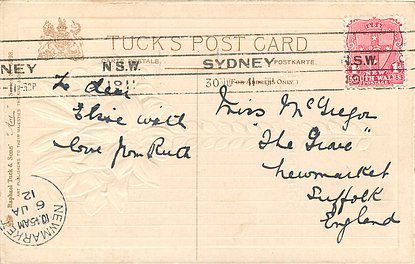 TUCK'S POST CARD
SYDNEY
N.S.W.
N.S.W.
NEY
POSTKARTE.
(For Address Only.)
To dear
Elsie with
love from Ruth
Miss McGregor
"The Grove"
Newmarket
Suffolk
England
Raphael Tuck & Sons'
NEWMARKET
10.45AM
6 JA
12